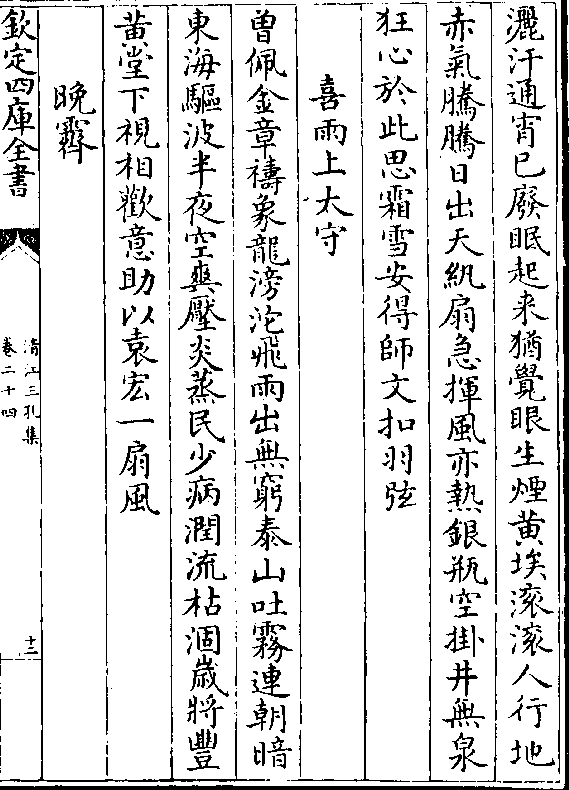 灑汗通宵已廢眠起来猶覺眼生煙黄埃滚滚人行地
赤氣騰騰日出天紈扇急揮風亦熱銀瓶空掛井無泉
狂心於此思霜雪安得師文扣羽弦
喜雨上太守
曽佩金章禱象龍滂沱飛雨出無窮泰山吐霧連朝暗
東海驅波半夜空爽壓炎蒸民少病潤流枯涸歲將豐
黄堂下視相歡意助以袁宏一扇風
晩霽
欽定四庫全書
清江三孔集
卷二十四
十二